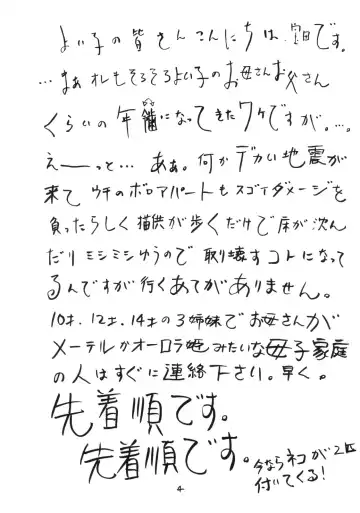 よい子の皆さんこんにちは、宮田です。
…まぁオレもそろそろよい子のお母さんお父さん
くらいの年齢になってきたワケですが。…。
えーーっと…あぁ。何かデカい地震が
来てウチのボロアパートもスゴイダメージを
負ったらしく猫供が歩くだけで床が沈ん
だりミシミシゆうので取り壊すコトになって
るんですが行くあてがありません。
10才、12才、14才の3姉妹でお母さんが
メーテルかオーロラ姫みたいな母子家庭
の人はすぐに連絡下さい。早く。
先着順です。
先着順です。
今ならネコが2匹
付いてくる!
4